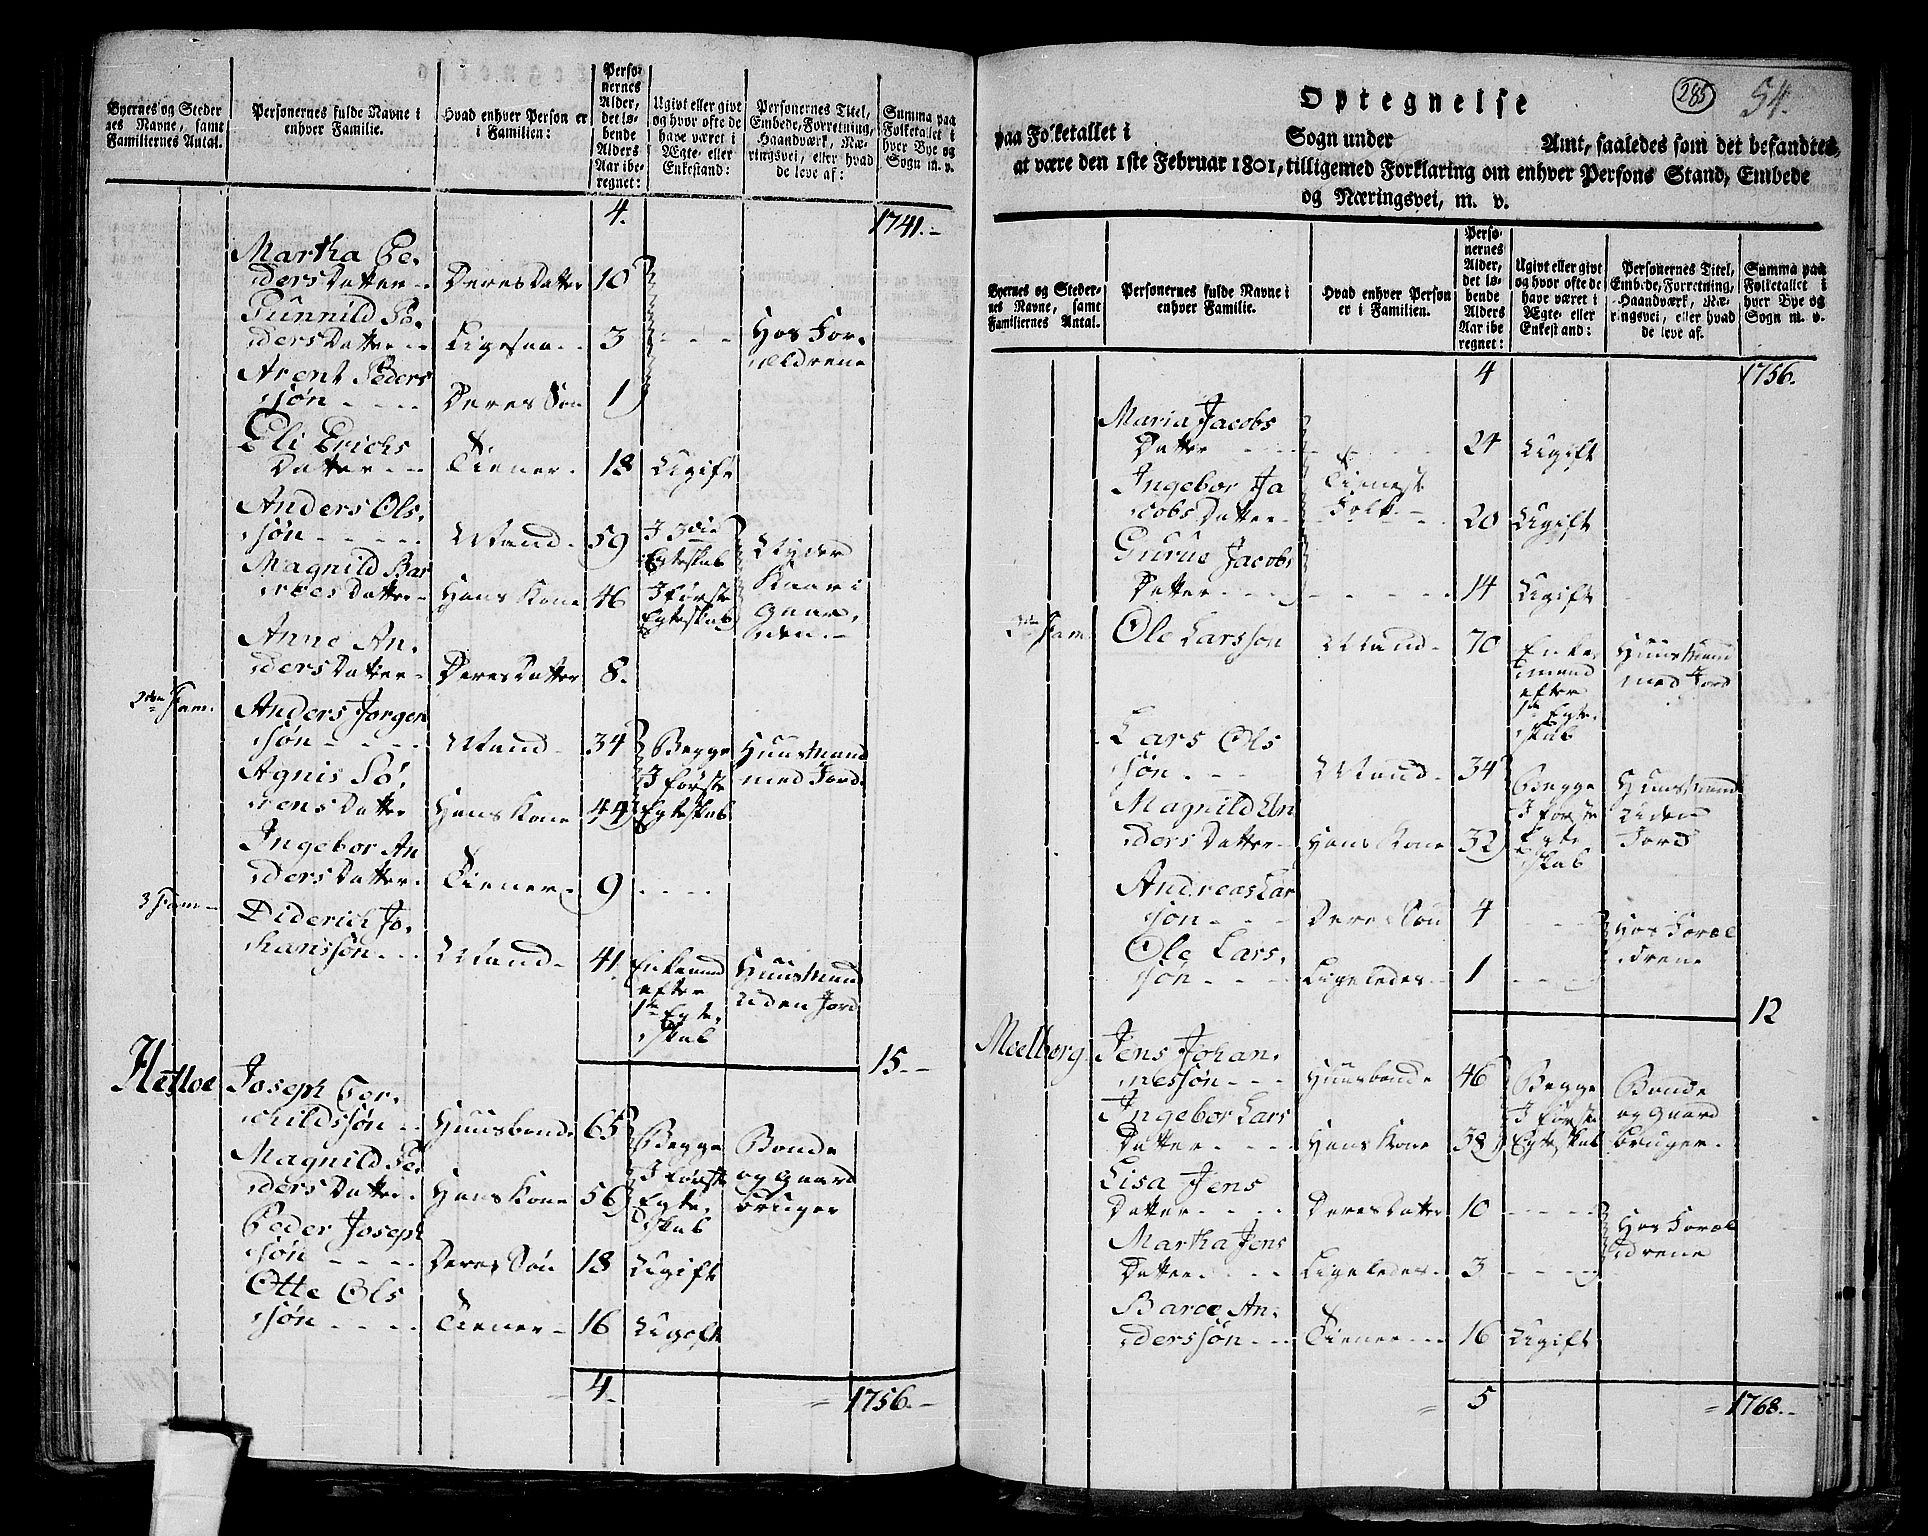 Byernes og Steder
nes Navne, samt
Familiernes Antal.
Personernes fulde Navne i
enhver Familie.
Hvad enhver Person er
i Familien:
Perso-
nernes
Alder,
det lø-
bende
Alders
Aar ibe-
regnet:
Ugivt eller givt
og hvor ofte de
have været i
Ægte- eller
Enkestand:
Personernes Titel,
Embede, Forretning,
Haandværk, Næ-
ringsvei, eller hvad
de leve af:
Summa paa
Folketallet i
hver Bye og
Sogn m. v.
4. 1741.-
Martha Pe.
dersDatter - DeresDatter 10
Gunnild Pe.
dersDatter -- Ligesaa -- 3 - - - Hos For.
ældrene
Arent Peders
søn - - - - Deres Søn 1
Eli Erichs
Datter - - Tiener - 18 Ugift
Anders Ols.
søn - - - - - Mand - 59 I 2die
Egteskab Nyder
Kaar i
Gaar,
den. -
Magnild Bar
roesDatter - Hans Kone 46 I første
Egteskab
Anne An.
dersDatter - DeresDatter 8.
2den Fam. Anders Jørgen
søn - - - - Mand - 34 Begge
I første
Egteskab HuusMand
med Jord.
Agnis Sø.
rensDatter Hans Kone 44
Ingebor An
dersDatter. Tiener - 9 - - - -
3 Fam - Diderich Jo.
hanssøn - - Mand - 41. Enkemand
efter
1te Egte.
skab HuusMand
uden Jord
15 - -
Hestloe Joseph Ter.
childssøn - - Huusbonde 65 Begge
I første
Egte.
skab Bonde
og Gaard
bruger
Magnild Pe
dersDatter - Hans Kone 56
Peder Joseph
søn - - - - Deres Søn 18 Ugift
Otte Ols
søn - - - - Tiener - 16 Ugift
4. = 1756. -
285 54.
Optegnelse
paa Folketallet i Sogn under Amt, saaledes som det befandtes
at være den 1ste Februar 1801, tilligemed Forklaring om enhver Persons Stand, Embede
og Næringsvei, m. v.
Byernes og Steder-
nes Navne, samt
Familiernes Antal.
Personernes fulde Navne i
enhver Familie.
Hvad enhver Person
er i Familien.
Perso-
nernes
Alder,
det lø-
bende
Alders
Aar ibe
regnet:
Ugivt eller givt
og hvor ofte de
have været i
Ægte- eller
Enkestand:
Personernes Titel,
Embede, Forretning,
Haandværk, Næ-
ringsvei, eller hvad
de leve af.
Summa paa
Folketallet i
hver Bye og
Sogn m. v.
4 1756.
Maria Jacobs
Datter - - - - 24 Ugift
Ingebor Ja
cobsDatter - - Tieneste
Folk - 20 Ugift
Gurue Jacobs
Datter - - - - - - 14 Ugift
2den Fam. Ole Larssøn Mand - 70 Enke
mand
efter
1te Egte.
skab HuusMand
med Jord
Lars Ols
søn. - - Mand - 34 Begge
I første
Egte
skab HuusMand
Uden
Jord
Magnild An
dersDatter - Hans Kone 32
Andreas Lar
søn - - - Deres Søn 4 - - Hos Foræl
drene
Ole Lars.
søn - - - Ligeledes - 1 - - -
12
Moelborg Jens Johan.
nessøn - - - Huusbonde 46 Begge
I første
Egteskab Bonde
og Gaard
bruger -
Ingebor Lars
Datter - - - Hans Kone 38
Lisa Jens
Datter - - - - DeresDatter 10 - - - - - Hos Foræl
drene
Martha Jens
Datter - - - - Ligeledes - 3 - - - -
Baroe An.
derssøn - - - Tiener - - - 16 Ugift
= 5 = 1768. -